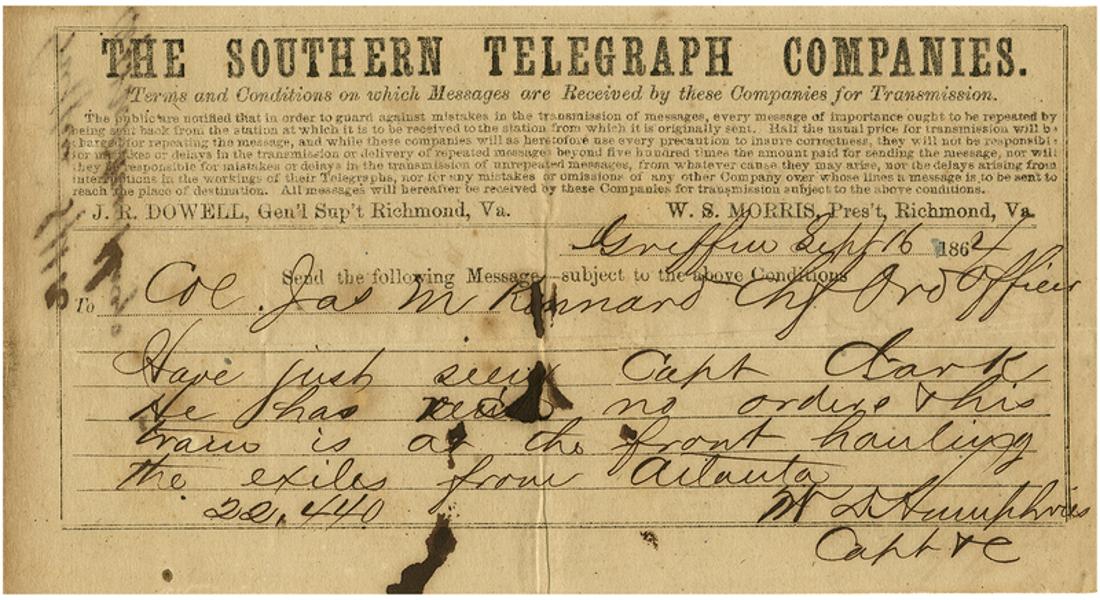 THE SOUTHERN TELEGRAPH COMPANIES.
Terms and Conditions on which Messages are Received by these Companies for Transmission.
The public are notified that in order to guard against mistakes in the transmission of messages, every message of importance ought to be repeated by
being sent back from the station at which it is to be received to the station from which it is originally sent. Half the usual price for transmission will be
charged for repeating the message, and while these companies will as heretofore use every precaution to insure correctness, they will not be responsible
for mistakes or delays in the transmission or delivery of repeated messages beyond five hundred times the amount paid for sending the message, nor will
they be responsible for mistakes or delays in the transmission of unrepeated messages, from whatever cause they may arise, nor for delays arising from
interruptions in the workings of their Telegraphs, nor for any mistakes or omissions of any other Company over whose lines a message is to be sent to
reach the place of destination. All messages will hereafter be received by these Companies for transmission subject to the above conditions.
J. R. DOWELL, Gen'l Sup't Richmond, Va. W. S. MORRIS, Pres't, Richmond, Va.
Griffin Sept 16 1864
Send the following Message subject to the above Conditions
To Col. Jas M Kennard Chf Ord Officer
Have just seen Capt Clark
He has recd no orders & his
train is at the front hauling
the exiles from Atlanta
22.440 W D Humphries
Capt &c